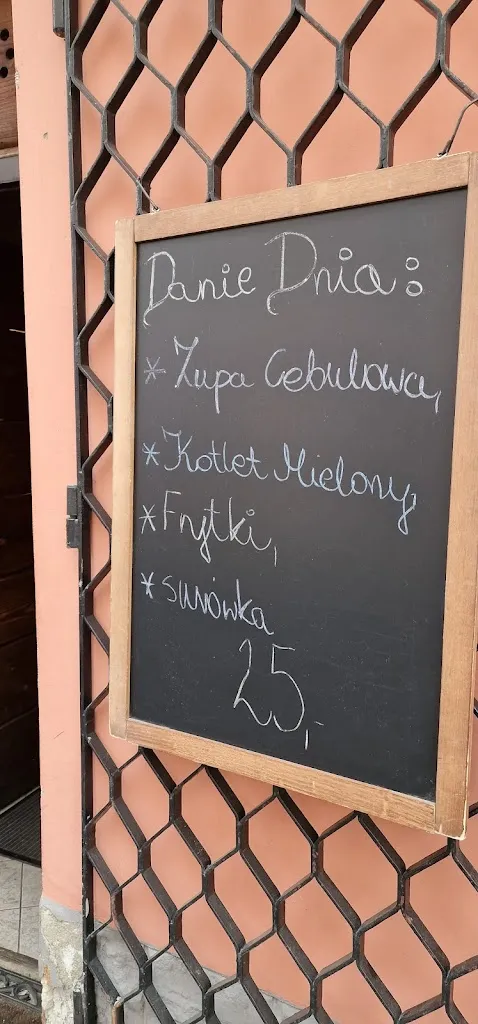 Danie Dnia:
* Zupa Cebulowa,
* Kotlet Mielony,
* Frytki,
* surówka
25,-